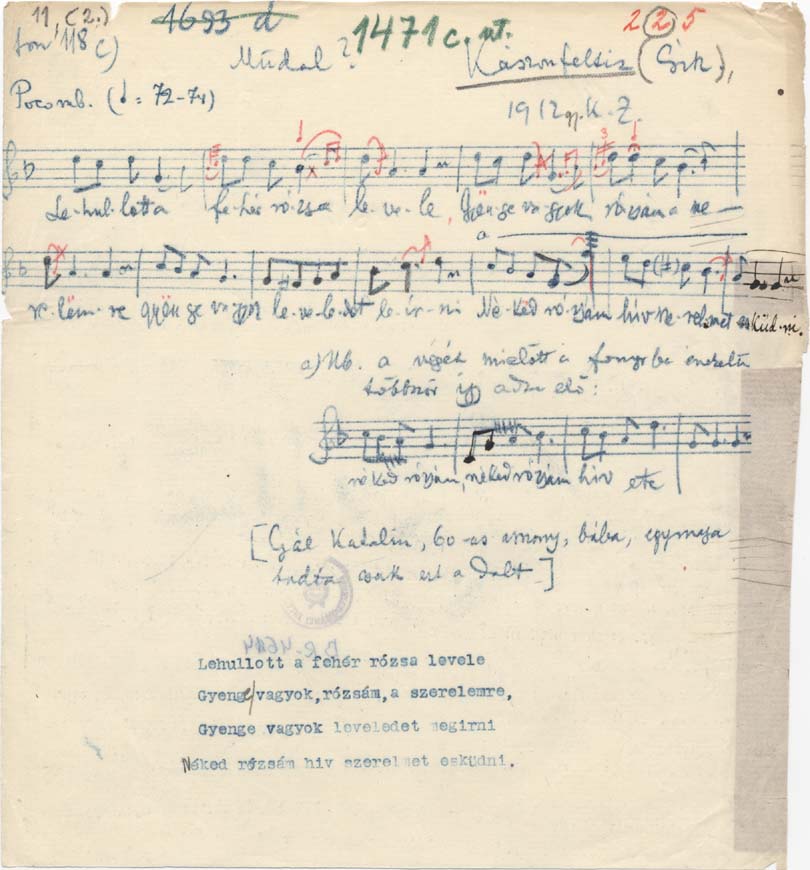 11, (2.) 1693 d 1471 c. 225
118 c) Műdal? Kászonfeltiz (Csík),
Poco rub. (♩ = 72-74) 1912 K. Z.
3
Le-hul-lotta fe-hér ró-zsa le-ve-le, gyön-ge va-gyok rózsám a
a
gyön-ge vagyok le-ve-le-det le-ír-ni Né-ked ró-zsám hív küd-ni.
a) Nb. a végét mielőtt a fonográfba énekelte
többször így adta elő:
néked rózsám, néked rózsám hív etc
[Gál Katalin, 60-as asszony, bába, egymaga
tudta csak ezt a dalt]
BR-4614
Lehullott a fehér rózsa levele
Gyenge vagyok,rózsám,a szerelemre,
Gyenge vagyok leveledet megirni
Néked rózsám hiv szerelmet esküdni.